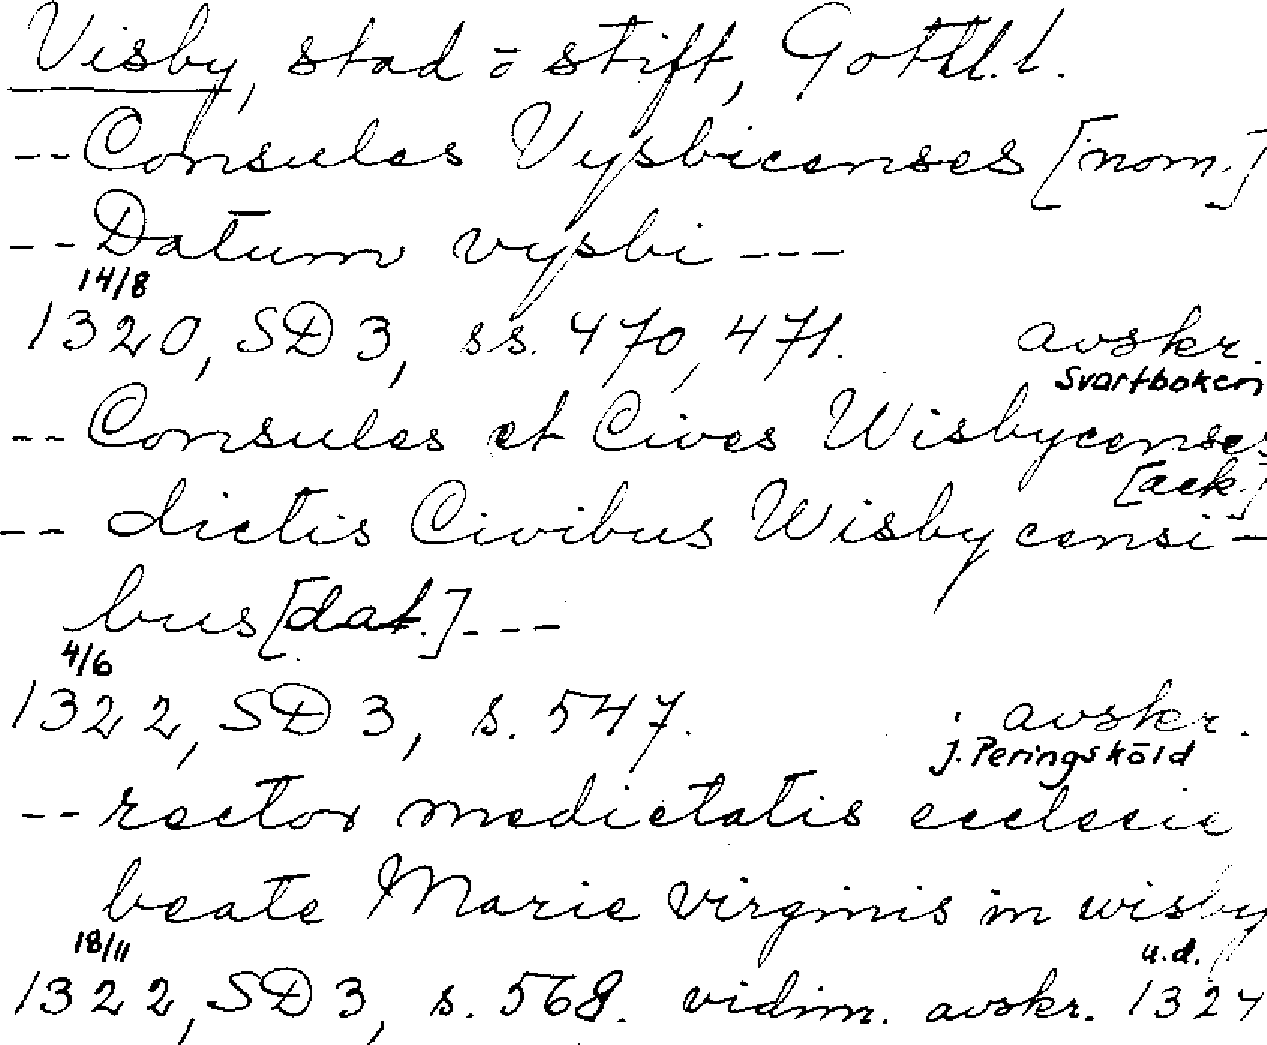 Visby, stad o stift, Gottl. l.
-- Consules Vysbicenses [nom.]
-- Datum vysbi ---
14/8
1320, SD 3, ss. 470, 471. avskr.
Svartboken
-- Consules et Cives Wisbycenses
[ack.]
-- dictis Civibus Wisbycensi-
bus [dat.] ---
4/6
1322, SD 3, s. 547. avskr.
J. Peringsköld
-- rector medietatis ecclesie
beate Marie virginis in wisby
18/11 u.d.
1322, SD 3, s. 568. vidim. avskr. 1324